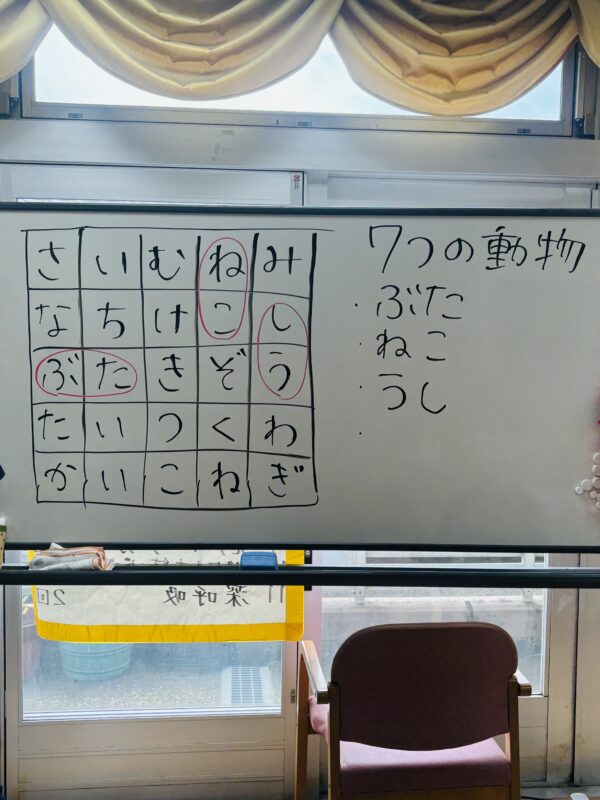 さいむねみ
なちけこし
ぶたきぞう
たいつくわ
かいこねぎ
7つの動物
・ぶた
・ねこ
・うし
・
11 深呼吸 2回